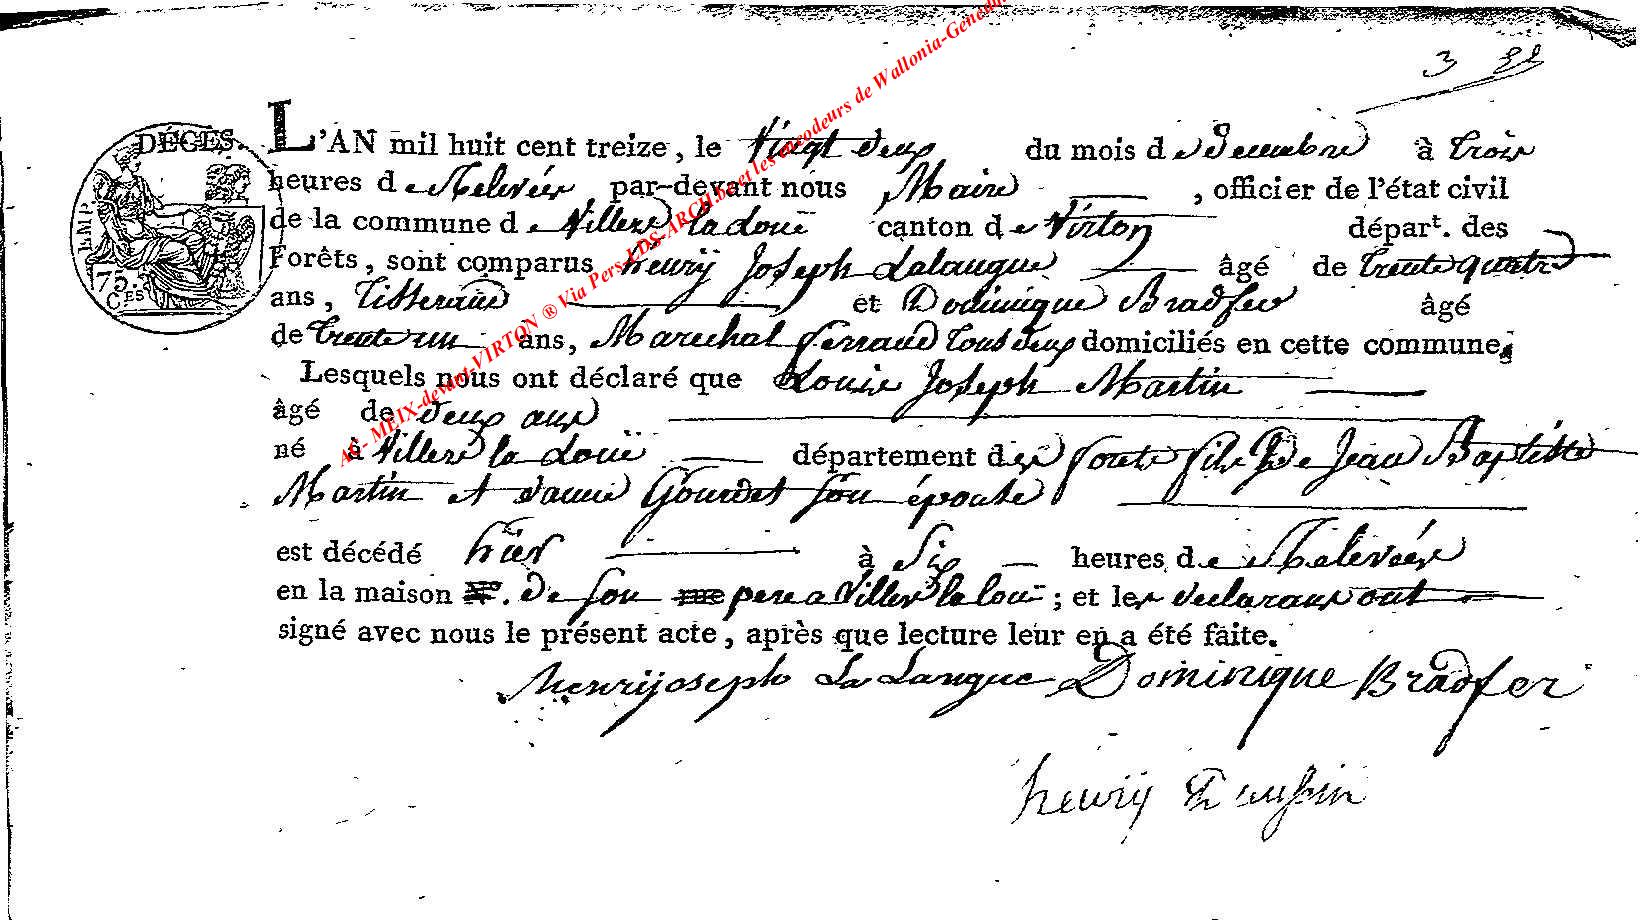 3 
DÉCÈS. L'AN mil huit cent treize, le Vingt deux du mois de Decembre à trois
heures de Relevée par-devant nous Maire, officier de l'état civil
de la commune de Villers la Loüe canton de Virton départ. des
Forêts, sont comparus henry Joseph Lalangue âgé de trente quatre
ans, Tisserand et Dominique Bradfer âgé
de trente un ans, Marechal ferrand tous deux domiciliés en cette commune,
Lesquels nous ont déclaré que Louis Joseph Martin
âgé de deux ans
né à Villers la Loüe département des forets fils de Jean Baptiste
Martin et d'anne Gourdet son épouse
est décédé hier à Six heures de Relevée
en la maison N°. de son rue pere a Villers la loüe; et les declarans ont
signé avec nous le présent acte, après que lecture leur en a été faite.
henry joseph La Langue Dominique Bradfer
henry
EMP.
75
CES
AE- MEIX-devant-VIRTON ® Via Pers-LDS-ARCH.be et les encodeurs de Wallonia-Genealo